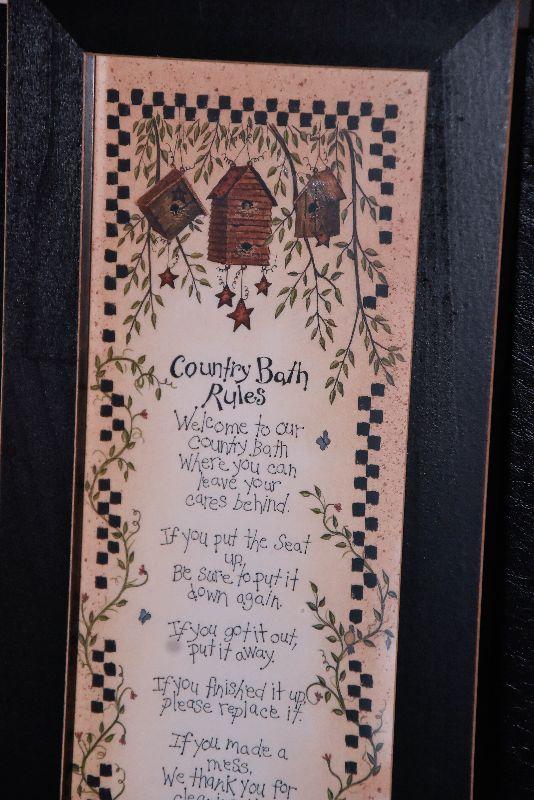 Country Bath
Rules
Welcome to our
Country Bath
Where you can
leave your
cares behind.
If you put the Seat
up,
Be sure to put it
down again.
If you got it out,
put it away.
If you finished it up,
please replace it.
If you made a
mess,
We thank you for